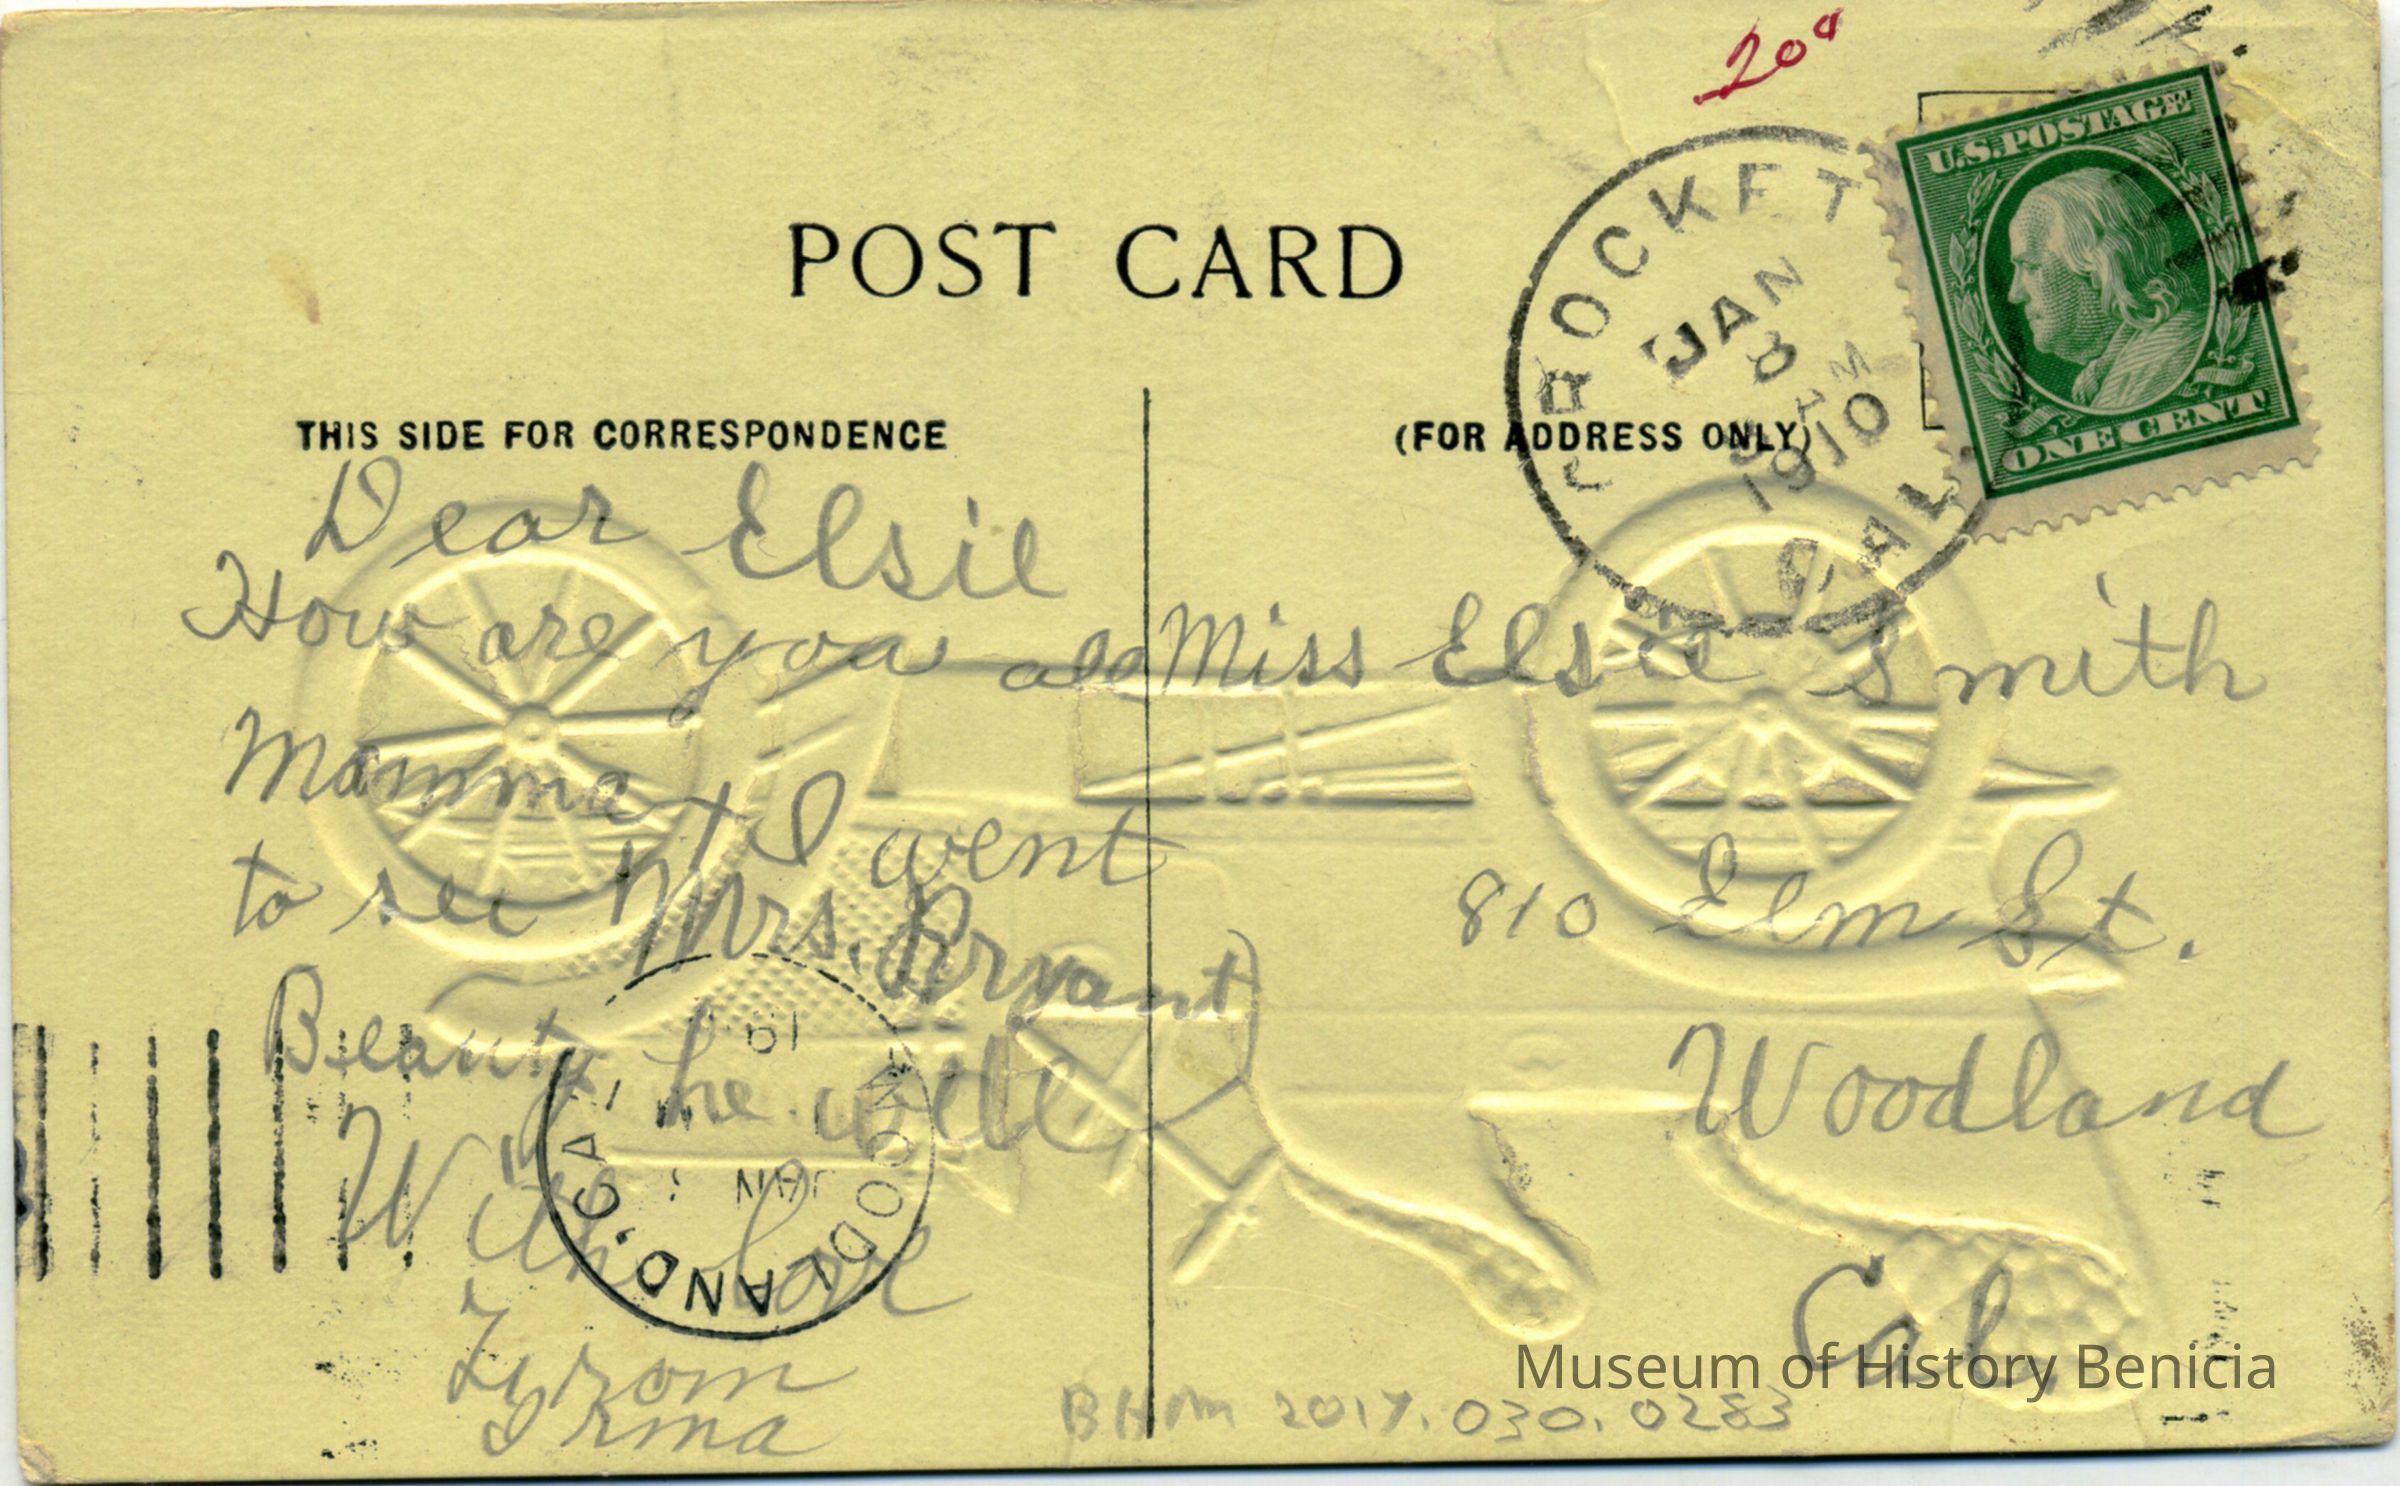 20¢
U.S. POSTAGE
ONE CENT
CROCKETT
JAN
8
M
1910
CAL
POST CARD
THIS SIDE FOR CORRESPONDENCE
(FOR ADDRESS ONLY)
Dear Elsie
How are you all
Mamma + I went
to see Mrs. Bryant
Beauty he well
With love
From
Irma
Miss Elsie Smith
810 Elm St.
Woodland
Cal
WOODLAND, CAL.
JAN
19
BHM 2017.030.0283
Museum of History Benicia